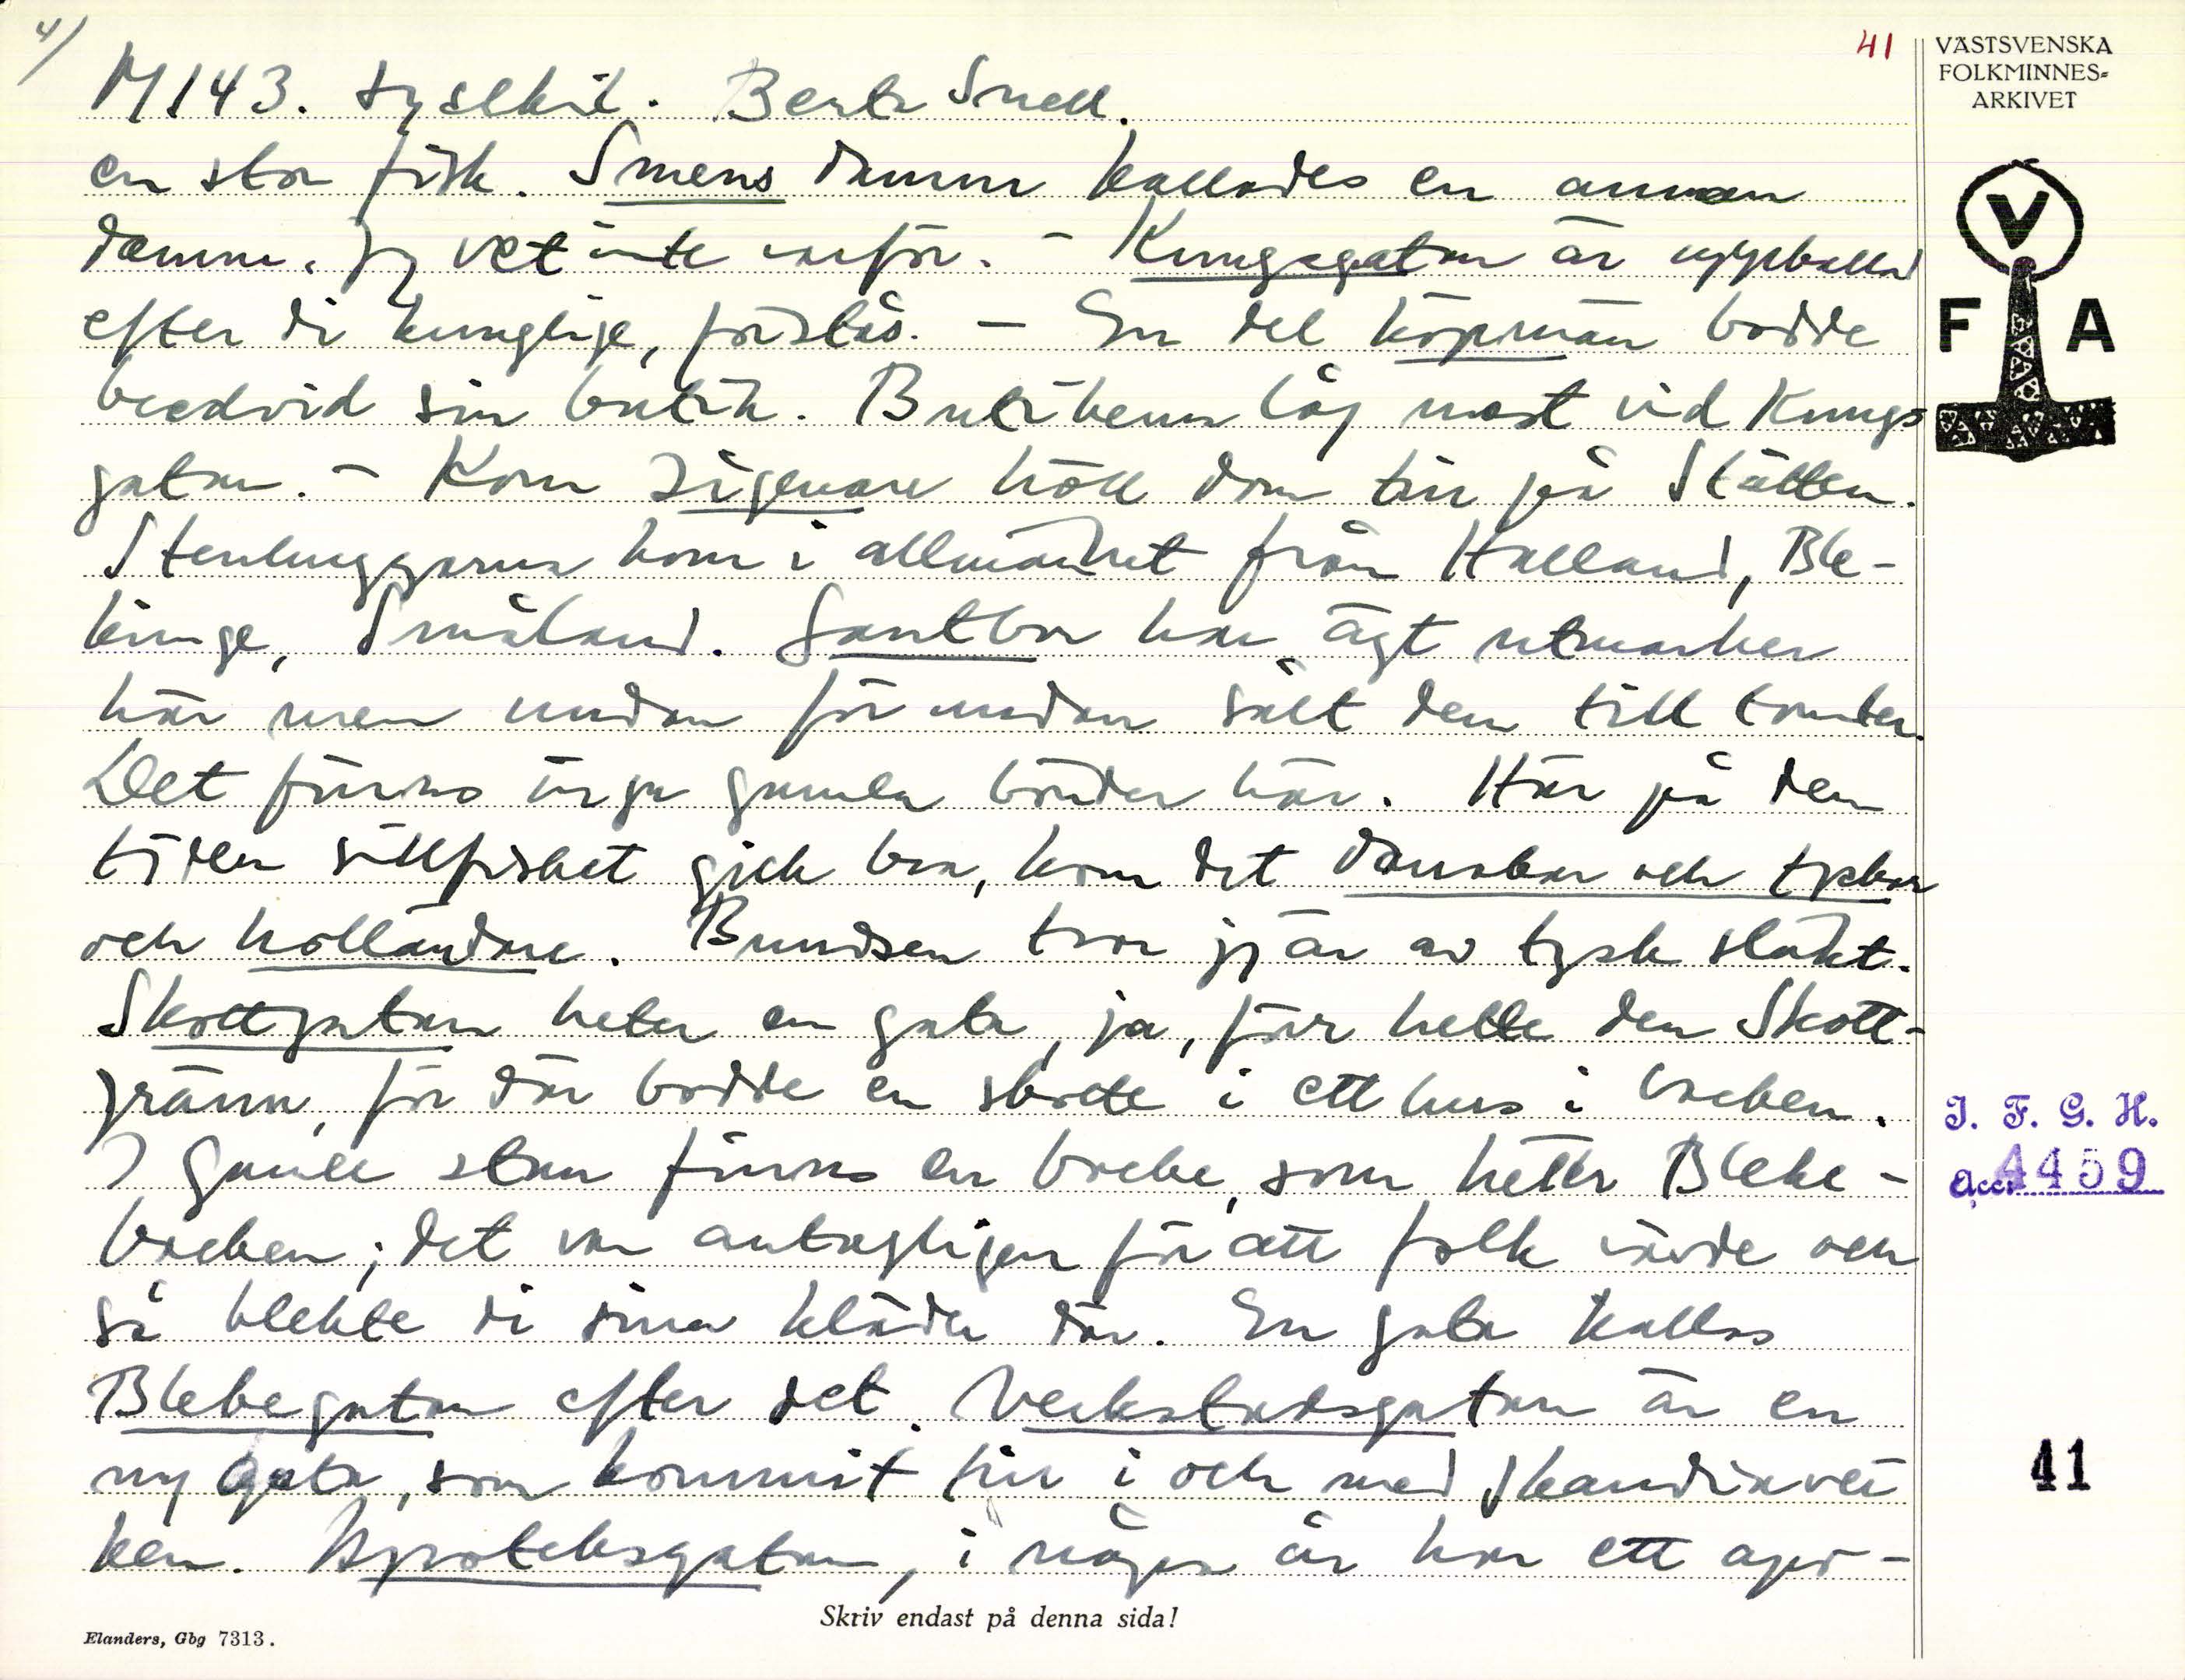 4/
41
M 143. Lysekil. Berta Snell.
en stor fisk. Smens damm kallades en annan
damm. Jg vet inte varför. – Kungsgatan är uppkallad
efter di kunglige, förstås. – En del köpmän bodde
bredvid sin butik. Butikerna låg mest vid Kungs
gatan. – Kom zigenare höll dom till på Slätten.
Stenhuggarna kom i allmänhet från Halland, Ble-
kinge, Småland. Lantbr har ägt utmarker
här men undan för undan sålt dem till tomter.
Det finns inga gamla bönder här. Här på den
tiden sillfisket gick bra, kom det danskar och tyskar
och holländare. Bundsen tror jg är av tysk släkt.
Skottgatan heter en gata, ja, förr hette den Skott-
gränn, för där bodde en skotte i ett hus i backen.
I Gamle stan finns en backe, som heter Bleke-
backen; det var antagligen för att folk vävde och
så blekte di sina kläder där. En gata kallas
Blekegatan efter det. Verkstadsgatan är en
ny gata, som kommit till i och med Skandiaver
ken. Apoteksgatan, i några år har ett apo-
VÄSTSVENSKA
FOLKMINNES-
ARKIVET
V
F A
I. F. G. H.
Acc. 4459
41
Skriv endast på denna sida!
Elanders, Gbg 7313.